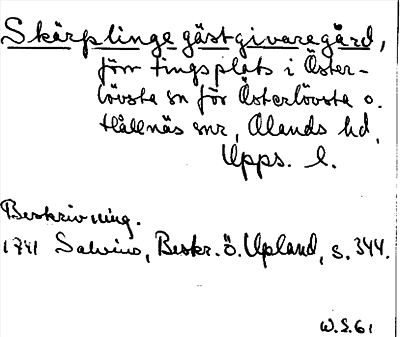 Skärplinge gästgivaregård,
förr tingsplats i Öster-
lövsta sn för Österlövsta o.
Hållnäs snr, Olands hd,
Upps. l.
Beskrivning.
1741 Salvius, Beskr. ö. Upland, s. 344.
W.S.61